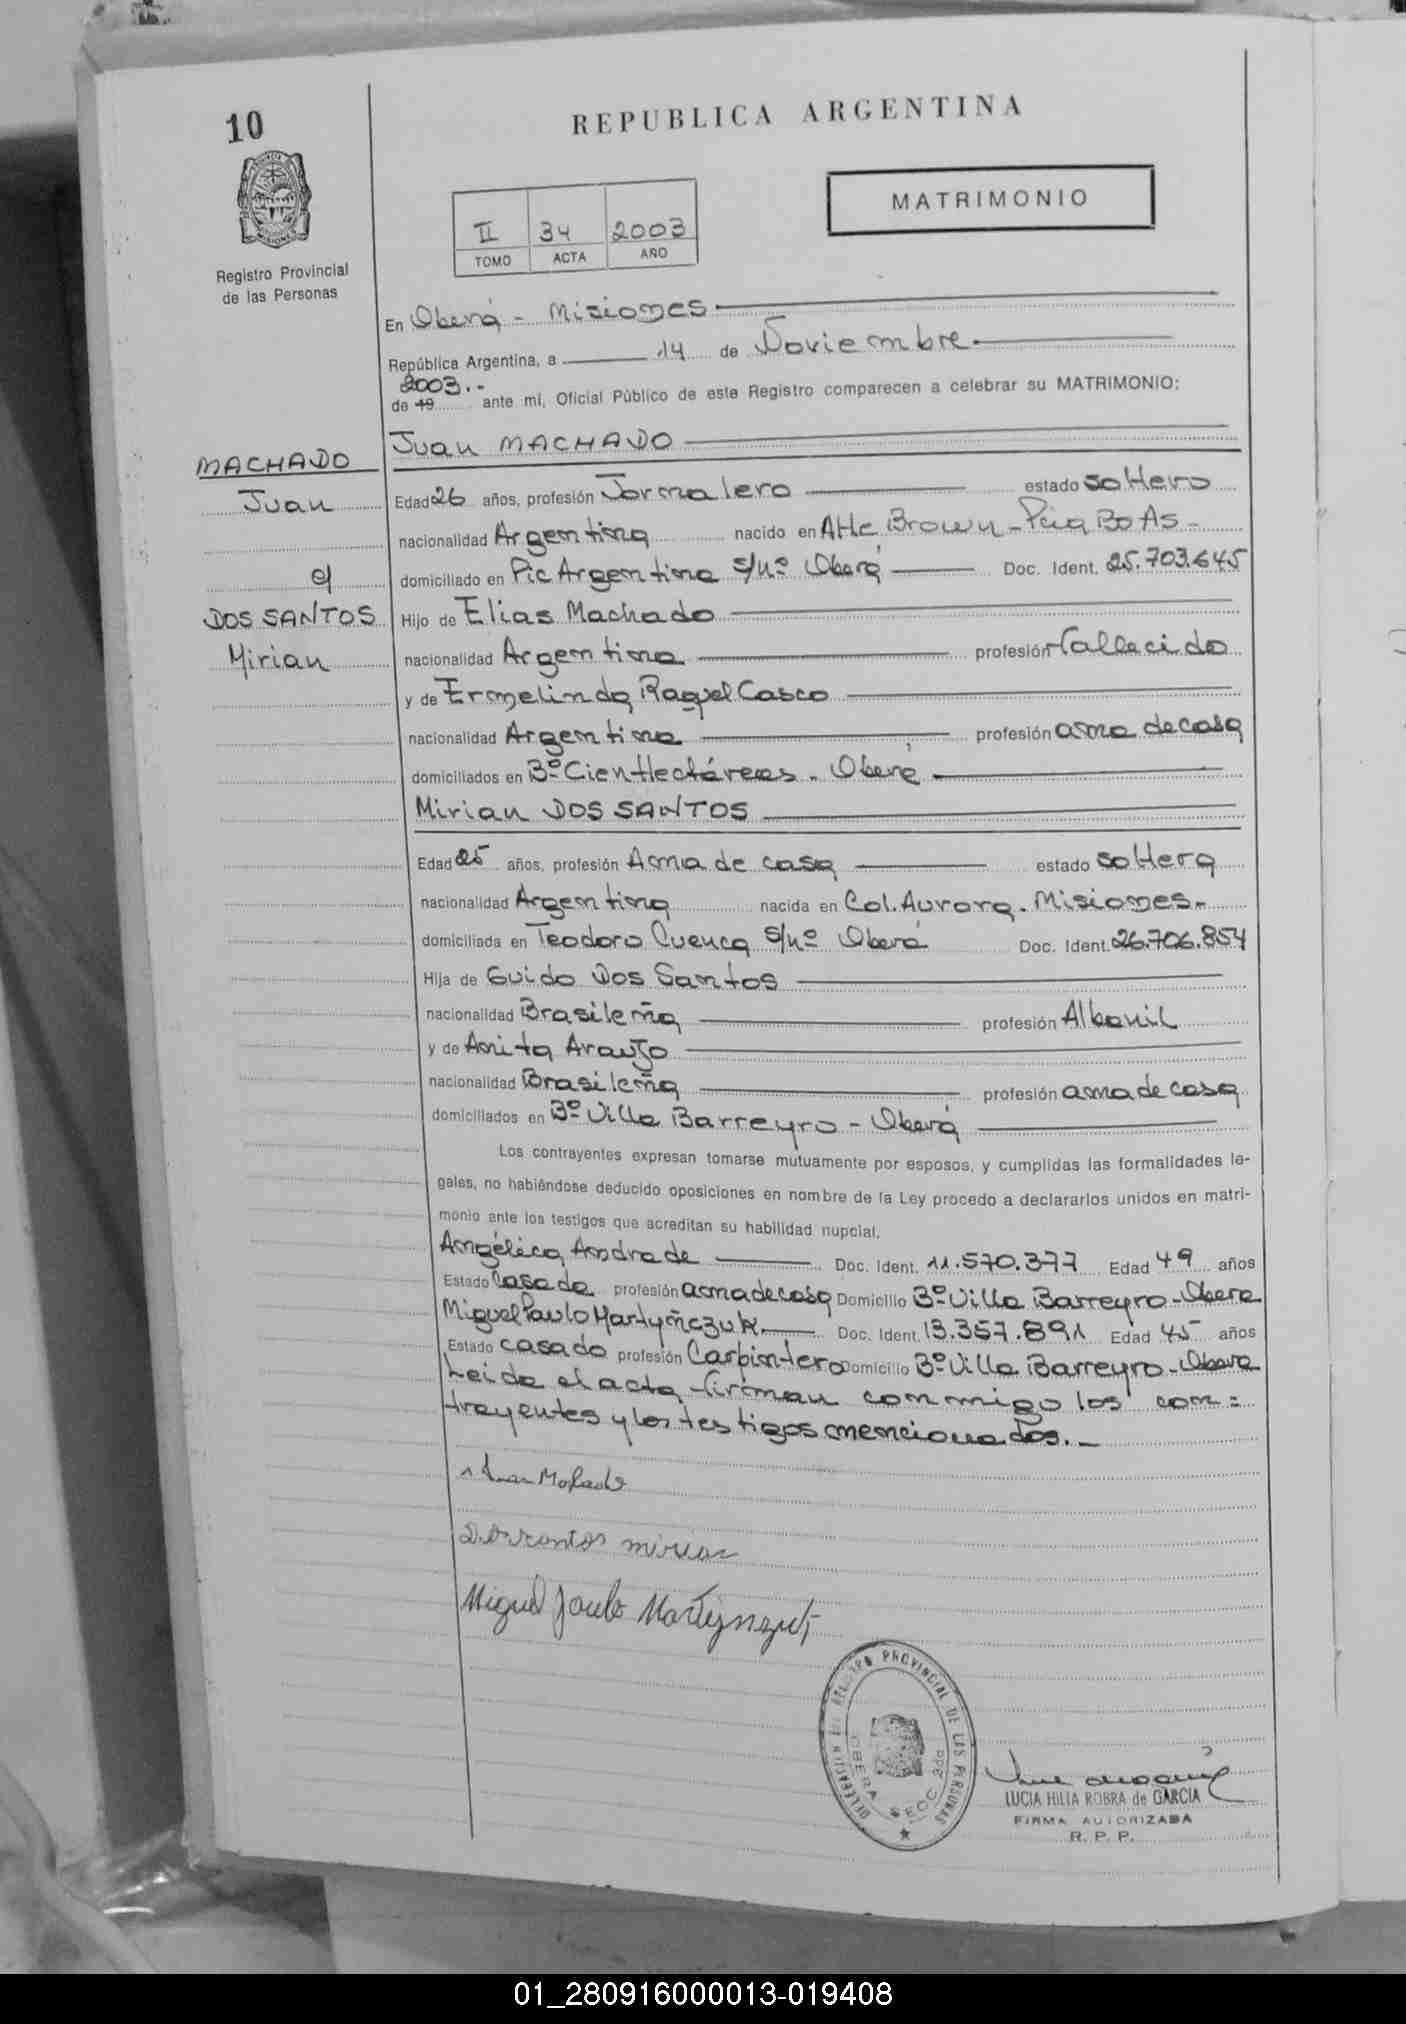 10
REPUBLICA ARGENTINA
MATRIMONIO
II 34 2003
TOMO ACTA AÑO
Registro Provincial
de las Personas
En Oberá - Misiones
República Argentina, a 14 de Noviembre
2003.-
de 19 ante mí, Oficial Público de este Registro comparecen a celebrar su MATRIMONIO:
Juan MACHADO
MACHADO
Juan
c/
DOS SANTOS
Mirian
Edad 26 años, profesión Jornalero estado soltero
nacionalidad Argentina nacido en Alte Brown - Pcia Bs As -
domiciliado en Pje Argentina s/nº Oberá Doc. Ident. 25.703.645
Hijo de Elias Machado
nacionalidad Argentina profesión fallecido
y de Ermelinda Raquel Casco
nacionalidad Argentina profesión ama de casa
domiciliados en Bº Cien Hectáreas - Oberá
Mirian DOS SANTOS
Edad 25 años, profesión Ama de casa estado soltera
nacionalidad Argentina nacida en Col. Aurora - Misiones -
domiciliada en Teodoro Cuenca s/nº Oberá Doc. Ident. 26.706.854
Hija de Guido Dos Santos
nacionalidad Brasileña profesión Albanil
y de Anita Araujo
nacionalidad Brasileña profesión ama de casa
domiciliados en Bº Villa Barreyro - Oberá
Los contrayentes expresan tomarse mutuamente por esposos, y cumplidas las formalidades le-
gales, no habiéndose deducido oposiciones en nombre de la Ley procedo a declararlos unidos en matri-
monio ante los testigos que acreditan su habilidad nupcial.
Angélica Andrade Doc. Ident. 11.570.377 Edad 49 años
Estado Casada profesión ama de casa Domicilio Bº Villa Barreyro - Oberá
Miguel Paulo Martyñczuk Doc. Ident. 13.357.891 Edad 45 años
Estado casado profesión Carpintero Domicilio Bº Villa Barreyro - Oberá
Leída el acta firman conmigo los con=
trayentes y los testigos mencionados.-
Juan Machado
Dos santos mirian
Miguel Paulo Martynczuk
DELEGACION DE REGISTRO PROVINCIAL DE LAS PERSONAS
OBERA SECC. 2da
LUCIA HILIA ROBRA de GARCIA
FIRMA AUTORIZADA
R. P. P.
01_280916000013-019408